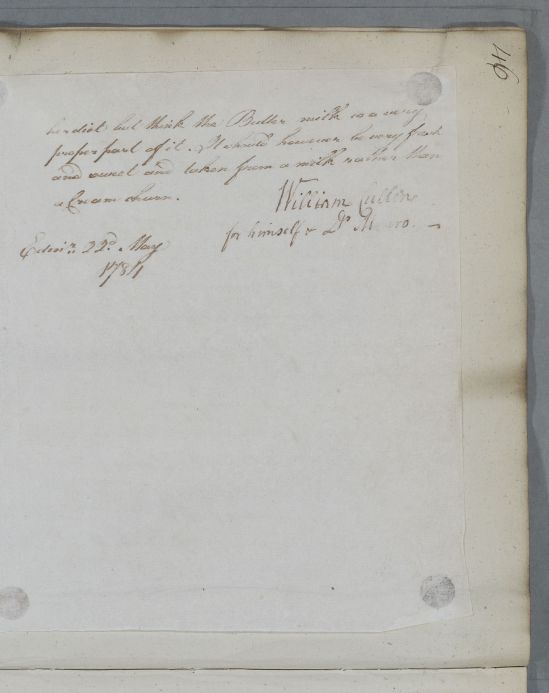 46
her diet but think the Butter milk is a very
proper part of it. It should however be very fresh
and sweet and taken from a milk rather than
a Cream churn.
William Cullen
for himself & Dr Monro.
Edinr. 22d. May
1784